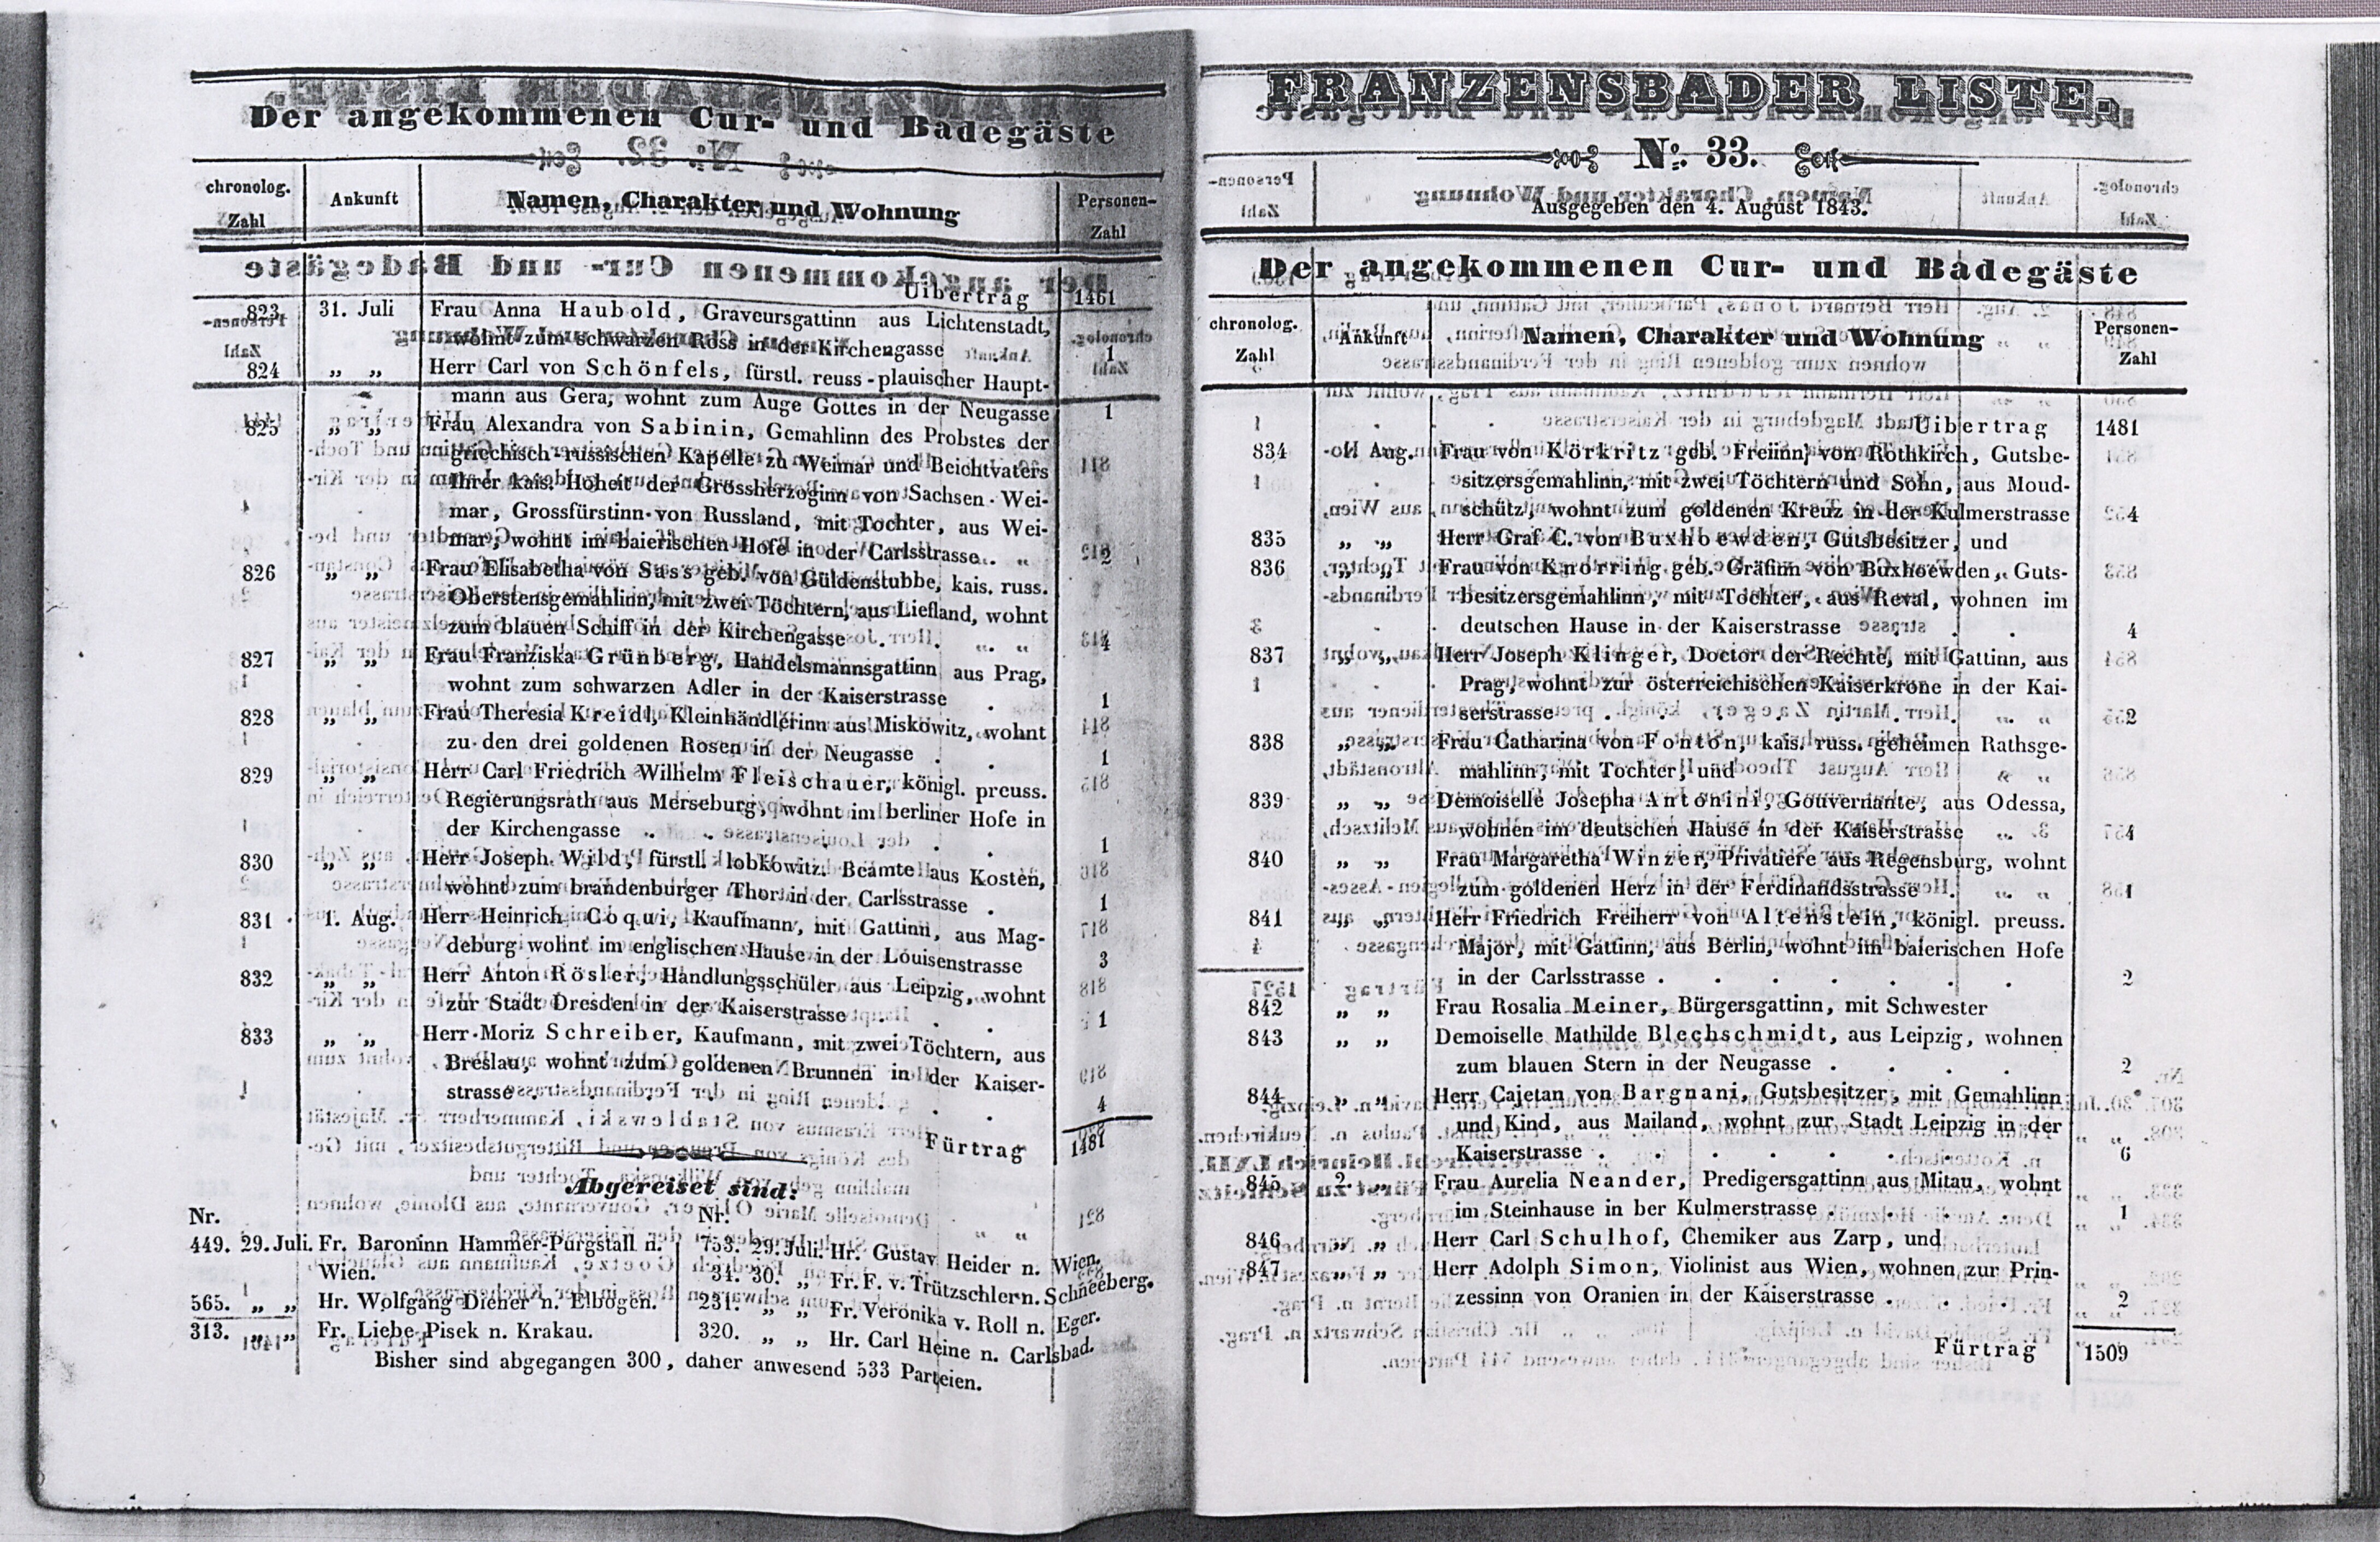 Der angekommenen Cur- und Badegäste
chronolog. Zahl Ankunft Namen, Charakter und Wohnung Personen-Zahl
Uibertrag 1461
823 31. Juli Frau Anna Haubold, Graveursgattinn aus Lichtenstadt,
wohnt zum schwarzen Ross in der Kirchengasse 1
824 „ „ Herr Carl von Schönfels, fürstl. reuss-plauischer Haupt-
mann aus Gera, wohnt zum Auge Gottes in der Neugasse 1
825 „ „ Frau Alexandra von Sabinin, Gemahlinn des Probstes der
griechisch-russischen Kapelle zu Weimar und Beichtvaters
Ihrer kais. Hoheit der Grossherzoginn von Sachsen-Wei-
mar, Grossfürstinn von Russland, mit Tochter, aus Wei-
mar, wohnt im baierischen Hofe in der Carlsstrasse . 2
826 „ „ Frau Elisabetha von Sass geb. von Güldenstubbe, kais. russ.
Oberstensgemahlinn, mit zwei Töchtern, aus Liefland, wohnt
zum blauen Schiff in der Kirchengasse . . . 4
827 „ „ Frau Franziska Grünberg, Handelsmannsgattinn aus Prag,
wohnt zum schwarzen Adler in der Kaiserstrasse . 1
828 „ „ Frau Theresia Kreidl, Kleinhändlerinn aus Miskowitz, wohnt
zu den drei goldenen Rosen in der Neugasse . . 1
829 „ „ Herr Carl Friedrich Wilhelm Fleischauer, königl. preuss.
Regierungsrath aus Merseburg, wohnt im berliner Hofe in
der Kirchengasse . . . . 1
830 „ „ Herr Joseph Wild, fürstl. lobkowitz. Beamte aus Kosten,
wohnt zum brandenburger Thor in der Carlsstrasse . 1
831 1. Aug. Herr Heinrich Coqui, Kaufmann, mit Gattinn, aus Mag-
deburg wohnt im englischen Hause in der Louisenstrasse 3
832 „ „ Herr Anton Rösler, Handlungsschüler aus Leipzig, wohnt
zur Stadt Dresden in der Kaiserstrasse . . . 1
833 „ „ Herr Moriz Schreiber, Kaufmann, mit zwei Töchtern, aus
Breslau, wohnt zum goldenen Brunnen in der Kaiser-
strasse . . . . . . 4
Fürtrag 1481
Abgereiset sind:
Nr. Nr.
449. 29. Juli. Fr. Baroninn Hammer-Purgstall n.
Wien.
565. „ „ Hr. Wolfgang Diener n. Elbogen.
313. „ „ Fr. Liebe Pisek n. Krakau.
753. 29. Juli. Hr. Gustav Heider n. Wien.
34. 30. „ Fr. F. v. Trützschler n. Schneeberg.
231. „ „ Fr. Veronika v. Roll n. Eger.
320. „ „ Hr. Carl Heine n. Carlsbad.
Bisher sind abgegangen 300, daher anwesend 533 Parteien.
FRANZENSBADER LISTE.
No. 33.
Ausgegeben den 4. August 1843.
Der angekommenen Cur- und Badegäste
chronolog. Zahl Ankunft Namen, Charakter und Wohnung Personen-Zahl
Uibertrag 1481
834 1. Aug. Frau von Körkritz geb. Freiinn von Rothkirch, Gutsbe-
sitzersgemahlinn, mit zwei Töchtern und Sohn, aus Moud-
schütz, wohnt zum goldenen Kreuz in der Kulmerstrasse 4
835 „ „ Herr Graf C. von Buxhoewden, Gutsbesitzer, und
836 „ „ Frau von Knorring geb. Gräfinn von Buxhoewden, Guts-
besitzersgemahlinn, mit Tochter, aus Reval, wohnen im
deutschen Hause in der Kaiserstrasse . . 4
837 „ „ Herr Joseph Klinger, Doctor der Rechte, mit Gattinn, aus
Prag, wohnt zur österreichischen Kaiserkrone in der Kai-
serstrasse . . . . . . 2
838 „ „ Frau Catharina von Fonton, kais. russ. geheimen Rathsge-
mahlinn, mit Tochter, und
839 „ „ Demoiselle Josepha Antonini, Gouvernante, aus Odessa,
wohnen im deutschen Hause in der Kaiserstrasse . 4
840 „ „ Frau Margaretha Winzer, Privatiere aus Regensburg, wohnt
zum goldenen Herz in der Ferdinandsstrasse . . 1
841 „ „ Herr Friedrich Freiherr von Altenstein, königl. preuss.
Major, mit Gattinn, aus Berlin, wohnt im baierischen Hofe
in der Carlsstrasse . . . . . . 2
842 „ „ Frau Rosalia Meiner, Bürgersgattinn, mit Schwester
843 „ „ Demoiselle Mathilde Blechschmidt, aus Leipzig, wohnen
zum blauen Stern in der Neugasse . . . . 2
844 „ „ Herr Cajetan von Bargnani, Gutsbesitzer, mit Gemahlinn
und Kind, aus Mailand, wohnt zur Stadt Leipzig in der
Kaiserstrasse . . . . . . 6
845 2. „ Frau Aurelia Neander, Predigersgattinn aus Mitau, wohnt
im Steinhause in ber Kulmerstrasse . . . . 1
846 „ „ Herr Carl Schulhof, Chemiker aus Zarp, und
847 „ „ Herr Adolph Simon, Violinist aus Wien, wohnen zur Prin-
zessinn von Oranien in der Kaiserstrasse . . . 2
Fürtrag 1509